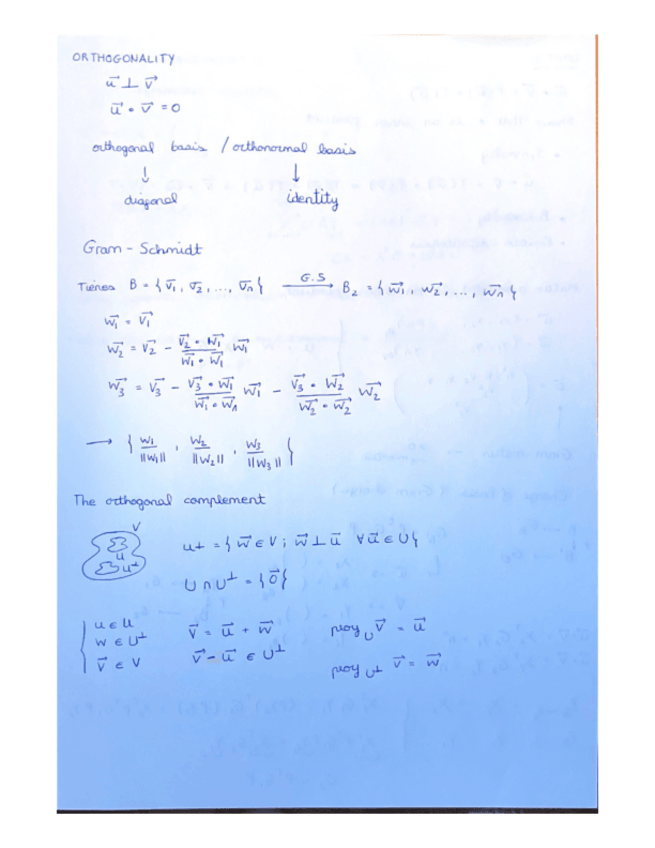 ORTHOGONALITY
u⃗ ⊥ v⃗
u⃗ • v⃗ = 0
orthogonal basis / orthonormal basis
↓ ↓
diagonal identity
Gram - Schmidt
Tienes B = { v⃗1, v⃗2, ..., v⃗n } G.S → B2 = { w⃗1, w⃗2, ..., w⃗n }
w⃗1 = v⃗1
w⃗2 = v⃗2 − (v⃗2 • w⃗1)/(w⃗1 • w⃗1) w⃗1
w⃗3 = v⃗3 − (v⃗3 • w⃗1)/(w⃗1 • w⃗1) w⃗1 − (v⃗3 • w⃗2)/(w⃗2 • w⃗2) w⃗2
→ { w1/||w1||, w2/||w2||, w3/||w3|| }
The orthogonal complement
V
U
U⊥
U⊥ = { w⃗ ∈ V ; w⃗ ⊥ u⃗ ∀ u⃗ ∈ U }
U ∩ U⊥ = { 0⃗ }
u ∈ U v⃗ = u⃗ + w⃗ proy U v⃗ = u⃗
w ∈ U⊥ v⃗ − u⃗ ∈ U⊥
v⃗ ∈ V proy U⊥ v⃗ = w⃗